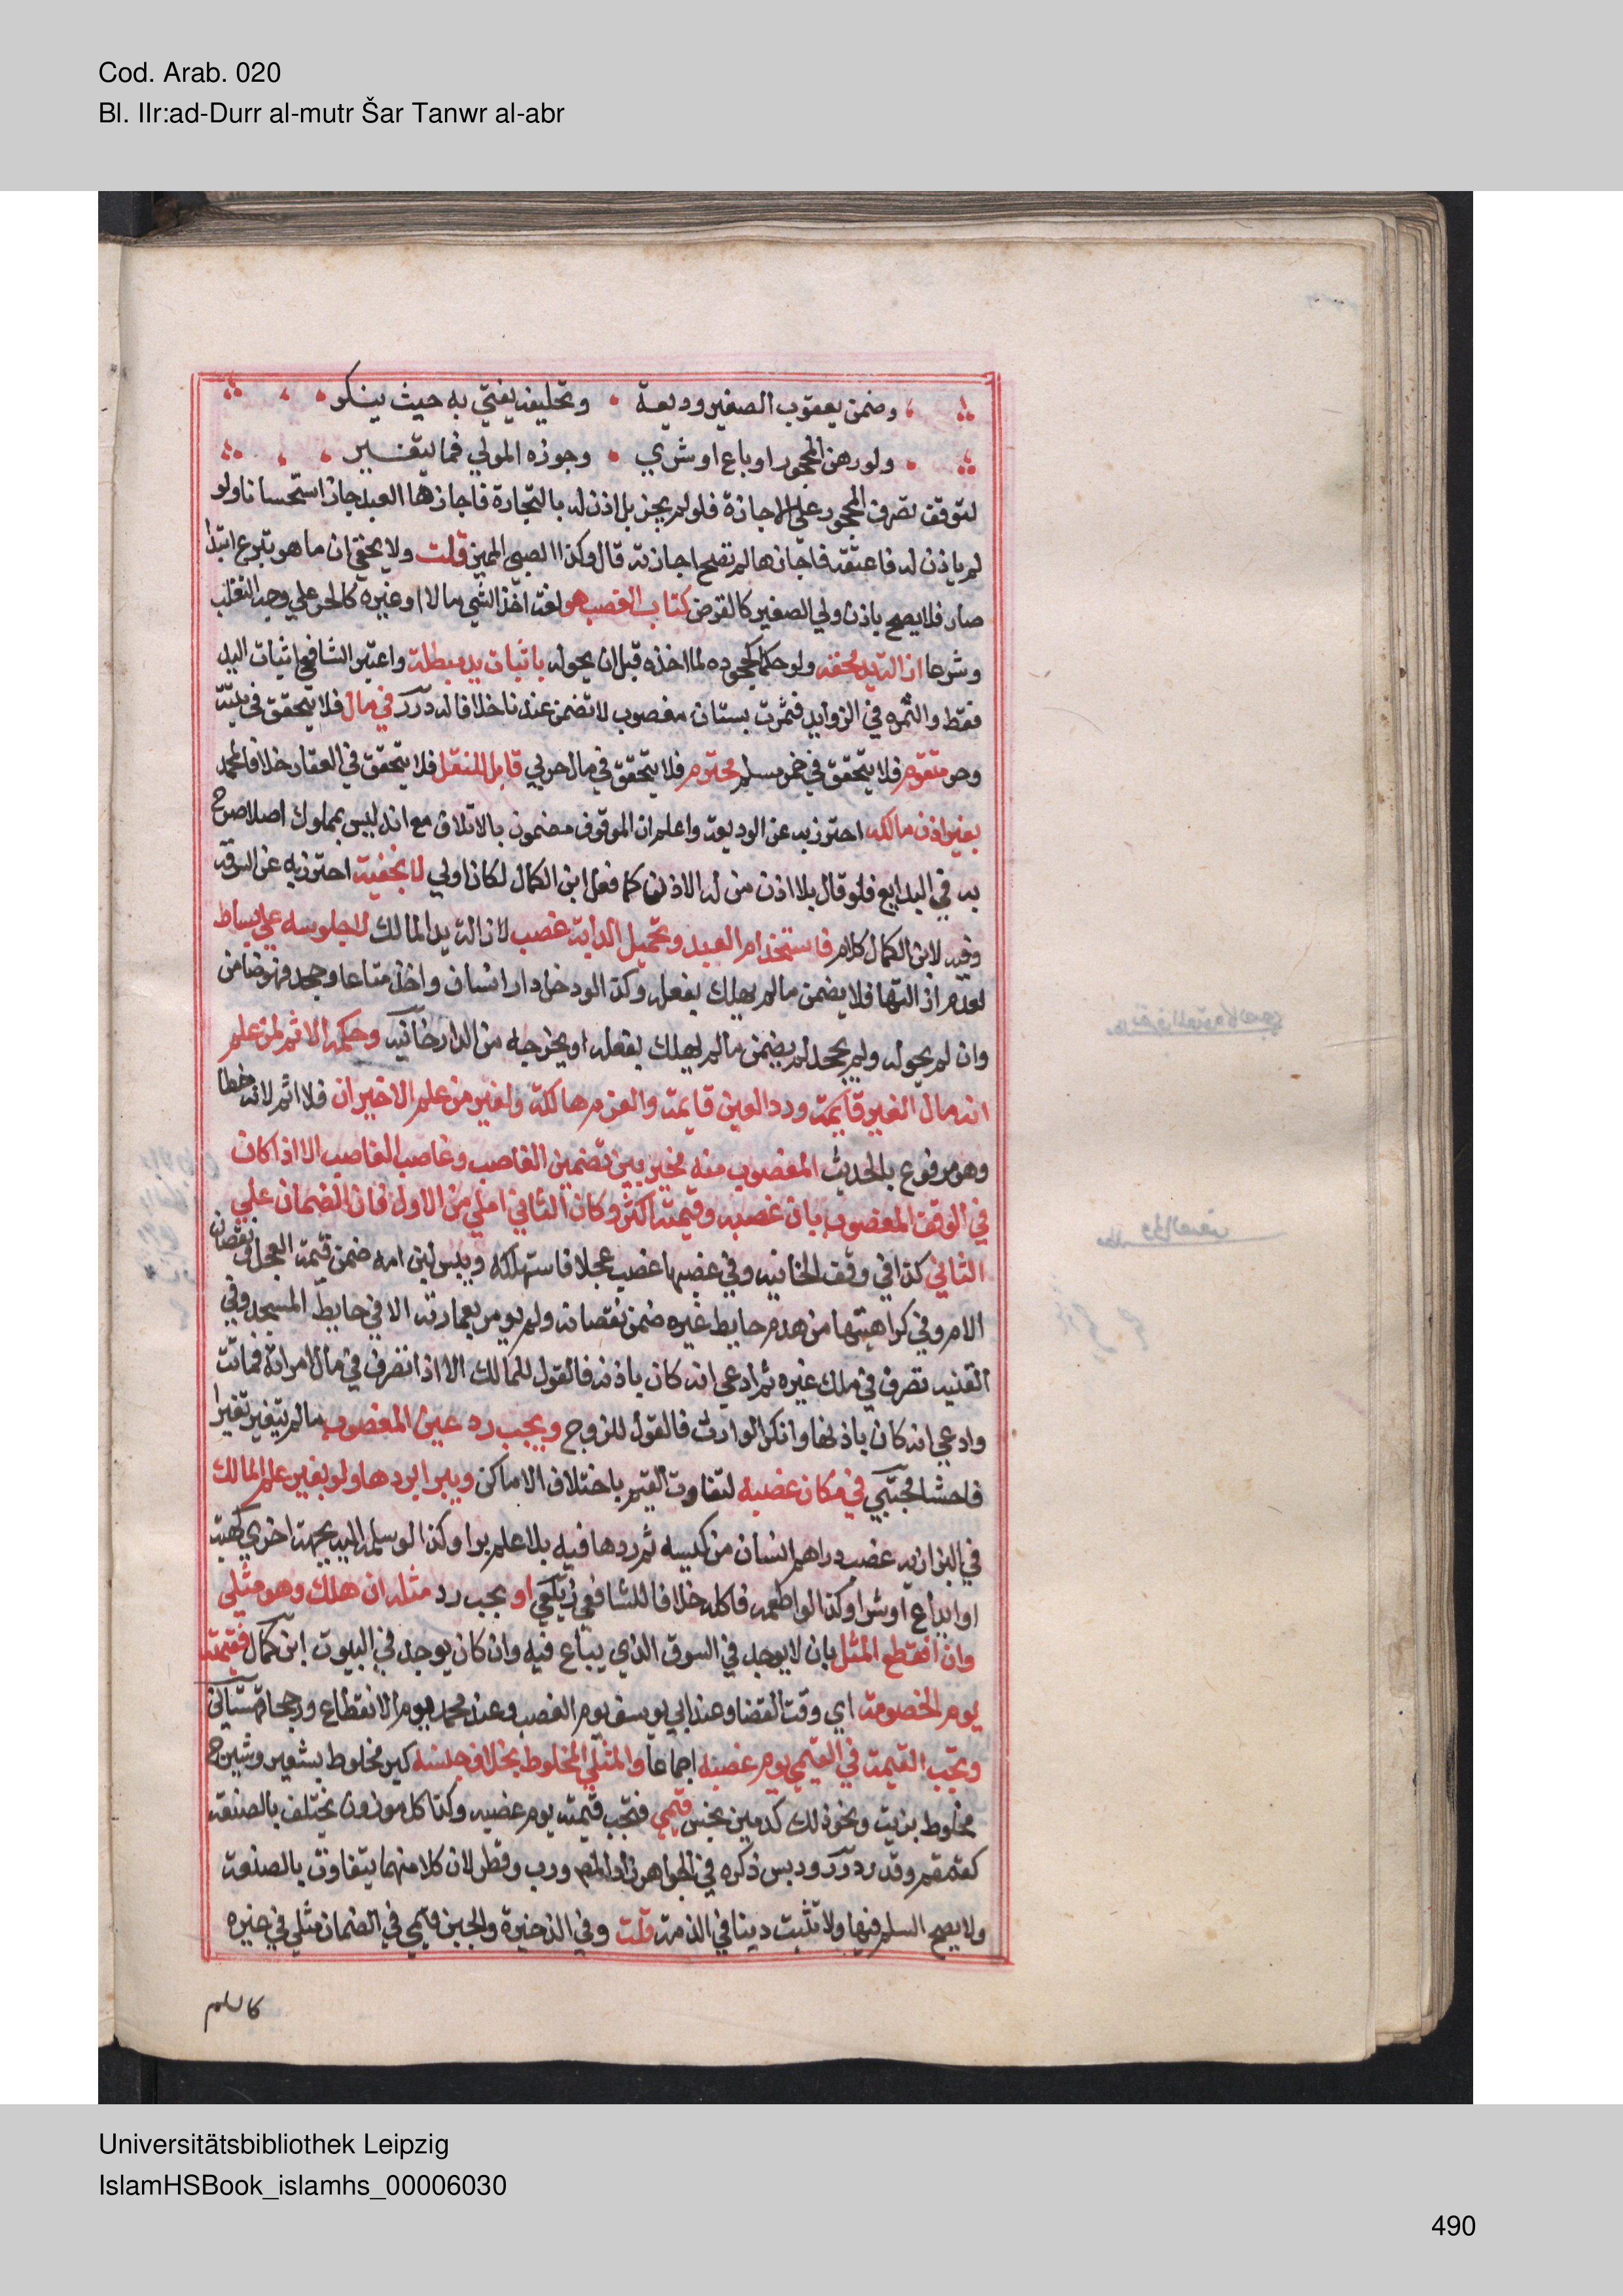 Cod. Arab. 020
Bl. IIr:ad-Durr al-mutr Šar Tanwr al-abr
وضمن يعقوب الصغير وديعة وتحليفه يفتي به حيث ينكر
ولو رهن المحجور او باع او شري وجوزه المولي فما يتغير
لتوقف تصرف المحجور علي الاجازة فلو لم يجز بل اذن له بالتجارة فاجازها العبد جاز استحسانا ولو
لم ياذن له فاعتقه فاجازها لم تصح اجازته قال وكذا الصبي المميز قلت ولا يخفي ان ما هو تبرع ابتدا
صار فلا يصح باذن ولي الصغير كالقرض كتاب الغصب هو لغة اخذ الشي مالا او غيره كالحر علي وجه التغلب
وشرعا ازالة يد محقة ولو حكما كجحوده لما اخذه قبل ان يحوله باثبات يد مبطلة واعتبر الشافعي اثبات اليد
فقط والثمره في الزوايد فثمرت بستان مغصوب لا تضمن عندنا خلافا له درر في مال فلا يتحقق في ميتة
وحر متقوم فلا يتحقق في خمر مسلم محترم فلا يتحقق في مال حربي قابل للنقل فلا يتحقق في العقار خلافا لمحمد
بغير اذن مالكه احترز به عن الوديعة واعلم ان الموقوف مضمون بالاتلاق مع انه ليس بمملوك اصلا صرح
به في البدايع فلو قال بلا اذن من له الاذن كما فعل ابن الكمال لكان اولي لا بخفية احترز به عن السرقة
وفيه لابن الكمال كلام فاستخدام العبد وتحميل الدابة غصب لازالة يد المالك لا جلوسه علي بساط
لعدم ازالتها فلا يضمن ما لم يهلك بفعله وكذا لو دخل دار انسان واخذ متاعا وجحد فهو ضامن
وان لم يحوله ولم يجحد لم يضمن ما لم يهلك بفعله او يخرجه من الدار خانيه وحكمه الاثم لمن علم
انه مال الغير قايمة ورد العين قايمة والغرم هالكة ولغير من علم الاخيران فلا اثم لانه خطا
وهو مرفوع بالحديث المغصوب منه مخير بين تضمين الغاصب وغاصب الغاصب الا اذا كان
في الوقف المغصوب بان غصبه وقيمته اكثر وكان الثاني املي من الاول فان الضمان علي
الثاني كذا في وقف الخانيه وفي غصبها غصب عجلا فاستهلكه ويبس لبن امه ضمن قيمة العجل ونقصان
الام وفي كراهيتها من هدم حايط غيره ضمن نقصانه ولم يومر بعمارته الا في حايط المسجد وفي
القنيه تصرف في ملك غيره ثم ادعي انه كان باذنه فالقول للمالك الا اذا تصرف في مال امراة فماتت
وادعي انه كان باذنها وانكر الوارث فالقول للزوج ويجب رد عين المغصوب ما لم يتغير تغيرا
فاحشا مجتبي في مكان غصبه لتفاوت القيم باختلاف الاماكن ويبرا بردها ولو بغير علم المالك
في البزازيه غصب دراهم انسان من كيسه ثم ردها فيه بلا علم برا وكذا لو سلمه اليه بجهة اخري كهبة
او ايداع او شرا وكذا لو اطعمه فاكله خلافا للشافعي زيلعي او يجب رد مثله ان هلك وهو مثلي
وان انقطع المثل بان لا يوجد في السوق الذي يباع فيه وان كان يوجد في البيوت ابن كمال فقيمته
يوم الخصومة اي وقت القضا وعند ابي يوسف يوم الغصب وعند محمد يوم الانقطاع ورجحا قهستاني
وتجب القيمة في القيمي يوم غصبه اجماعا والمثلي المخلوط بخلاف جنسه كبر مخلوط بشعير وشيرج
مخلوط بزيت ونحو ذلك كدهن نجس قيمي فتجب قيمته يوم غصبه وكذا كل موزون يختلف بالصنعة
كقمقم وقدر درر ودبس ذكره في الجواهر زاد المص ورب وقطر لان كلا منهما يتفاوت بالصنعة
ولا يصح السلم فيها ولا تثبت دينا في الذمة قلت وفي الذخيرة والجبن قيمي في الضمان مثلي في غيره
كالسلم
Universitätsbibliothek Leipzig
IslamHSBook_islamhs_00006030
490